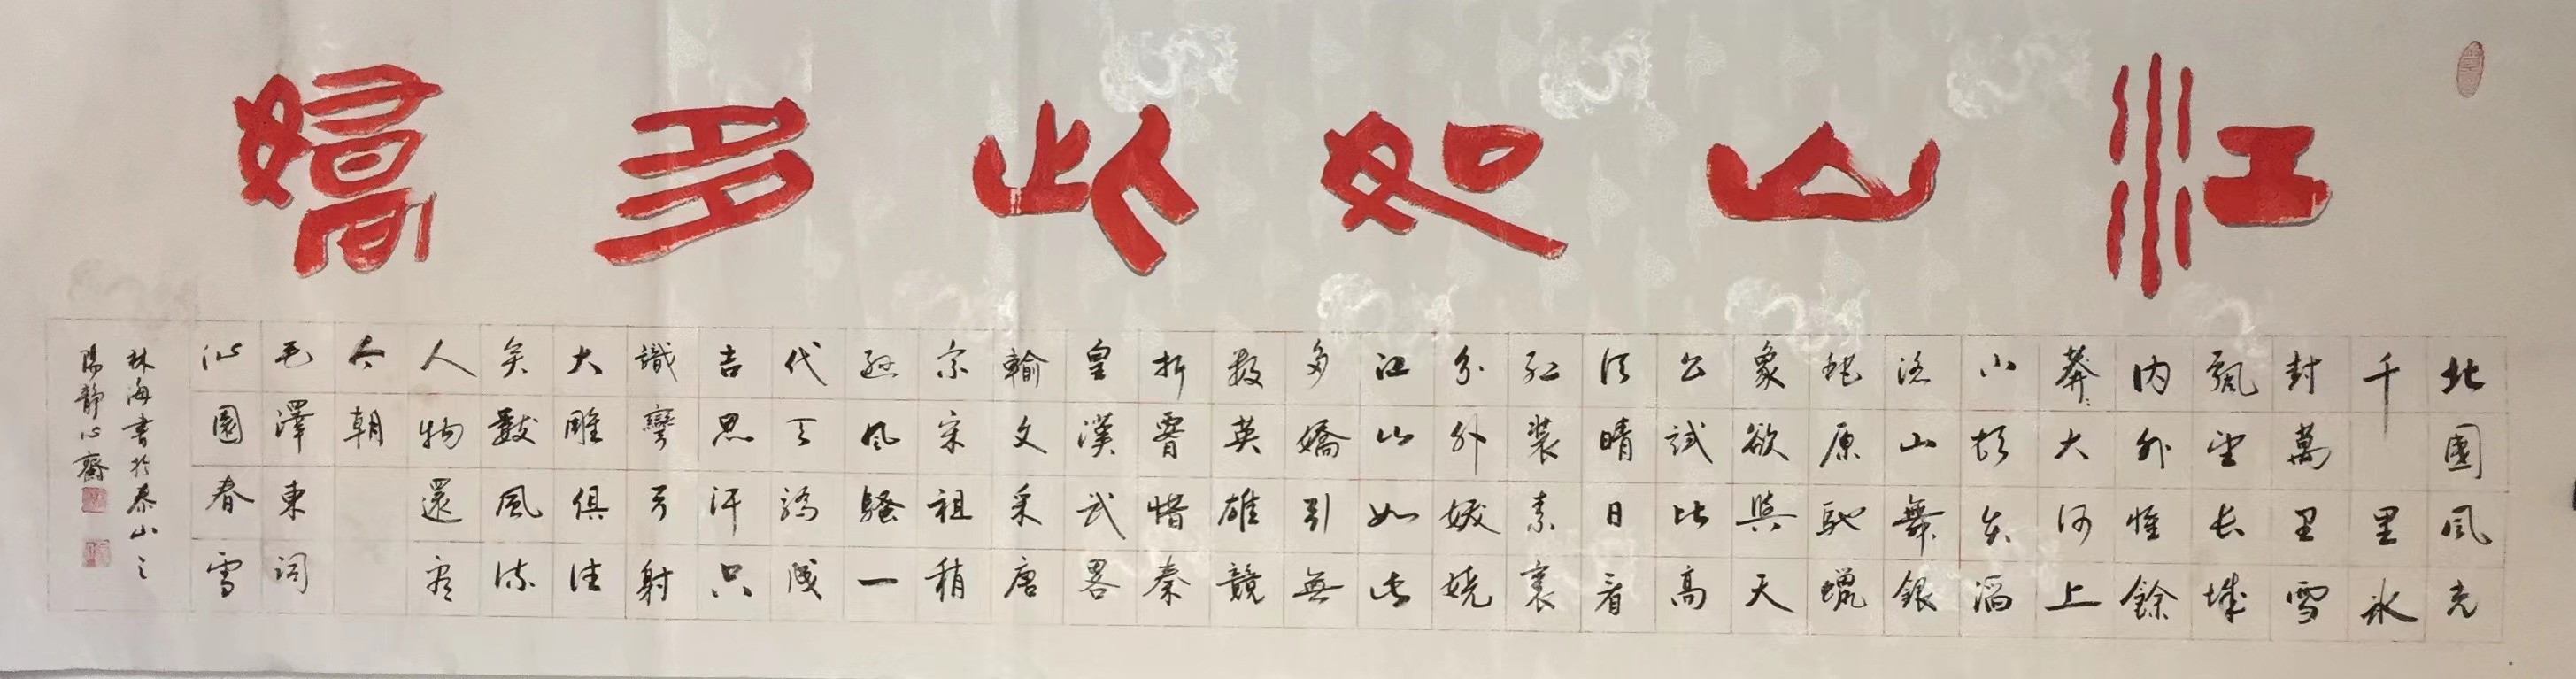 江山如此多嬌
北國風光
千里冰
封萬里雪
飄望長城
內外惟餘
莽〻大河上
下頓失滔
滔山舞銀
蛇原馳蠟
象欲與天
公試比高
須晴日看
紅裝素裹
分外妖嬈
江山如此
多嬌引無
數英雄競
折腰惜秦
皇漢武畧
輸文采唐
宗宋祖稍
遜風騷一
代天驕成
吉思汗只
識彎弓射
大雕俱往
矣數風流
人物還看
今朝
毛澤東詞
沁園春雪
林海書於泰山之
陽靜心齋